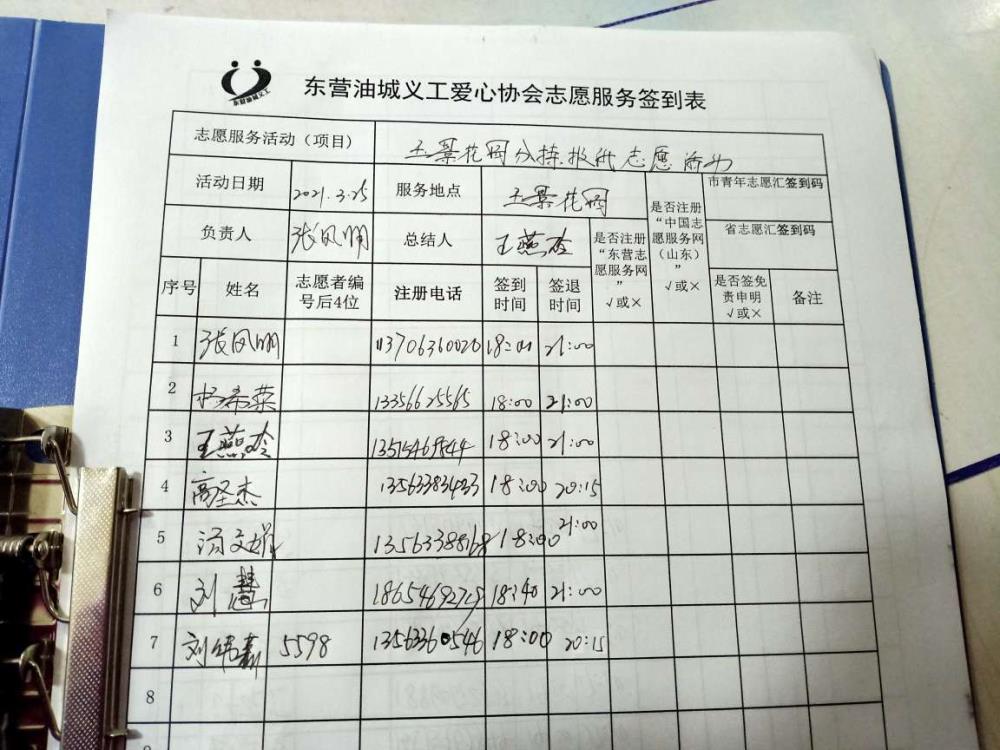 东营油城义工
东营油城义工爱心协会志愿服务签到表
志愿服务活动（项目） 玉景花园分持报纸志愿活动
活动日期 2021.3.25 服务地点 玉景花园
是否注册“中国志愿服务网（山东）” √或×
市青年志愿汇签到码
负责人 张凤明 总结人 王燕玲
是否注册“东营志愿服务网” √或×
省志愿汇签到码
序号 姓名 志愿者编号后4位 注册电话 签到时间 签退时间 是否签免责申明 √或× 备注
1 张凤明 13706360020 18:00 21:00
2 杨希荣 13356625565 18:00 21:00
3 王燕玲 18:00 21:00
4 高圣杰 13563383433 18:00 20:15
5 汤文娟 13563388168 18:00 21:00
6 刘慧 18654692719 18:40 21:00
7 刘纬鑫 5598 13563360546 18:00 20:15
8
9